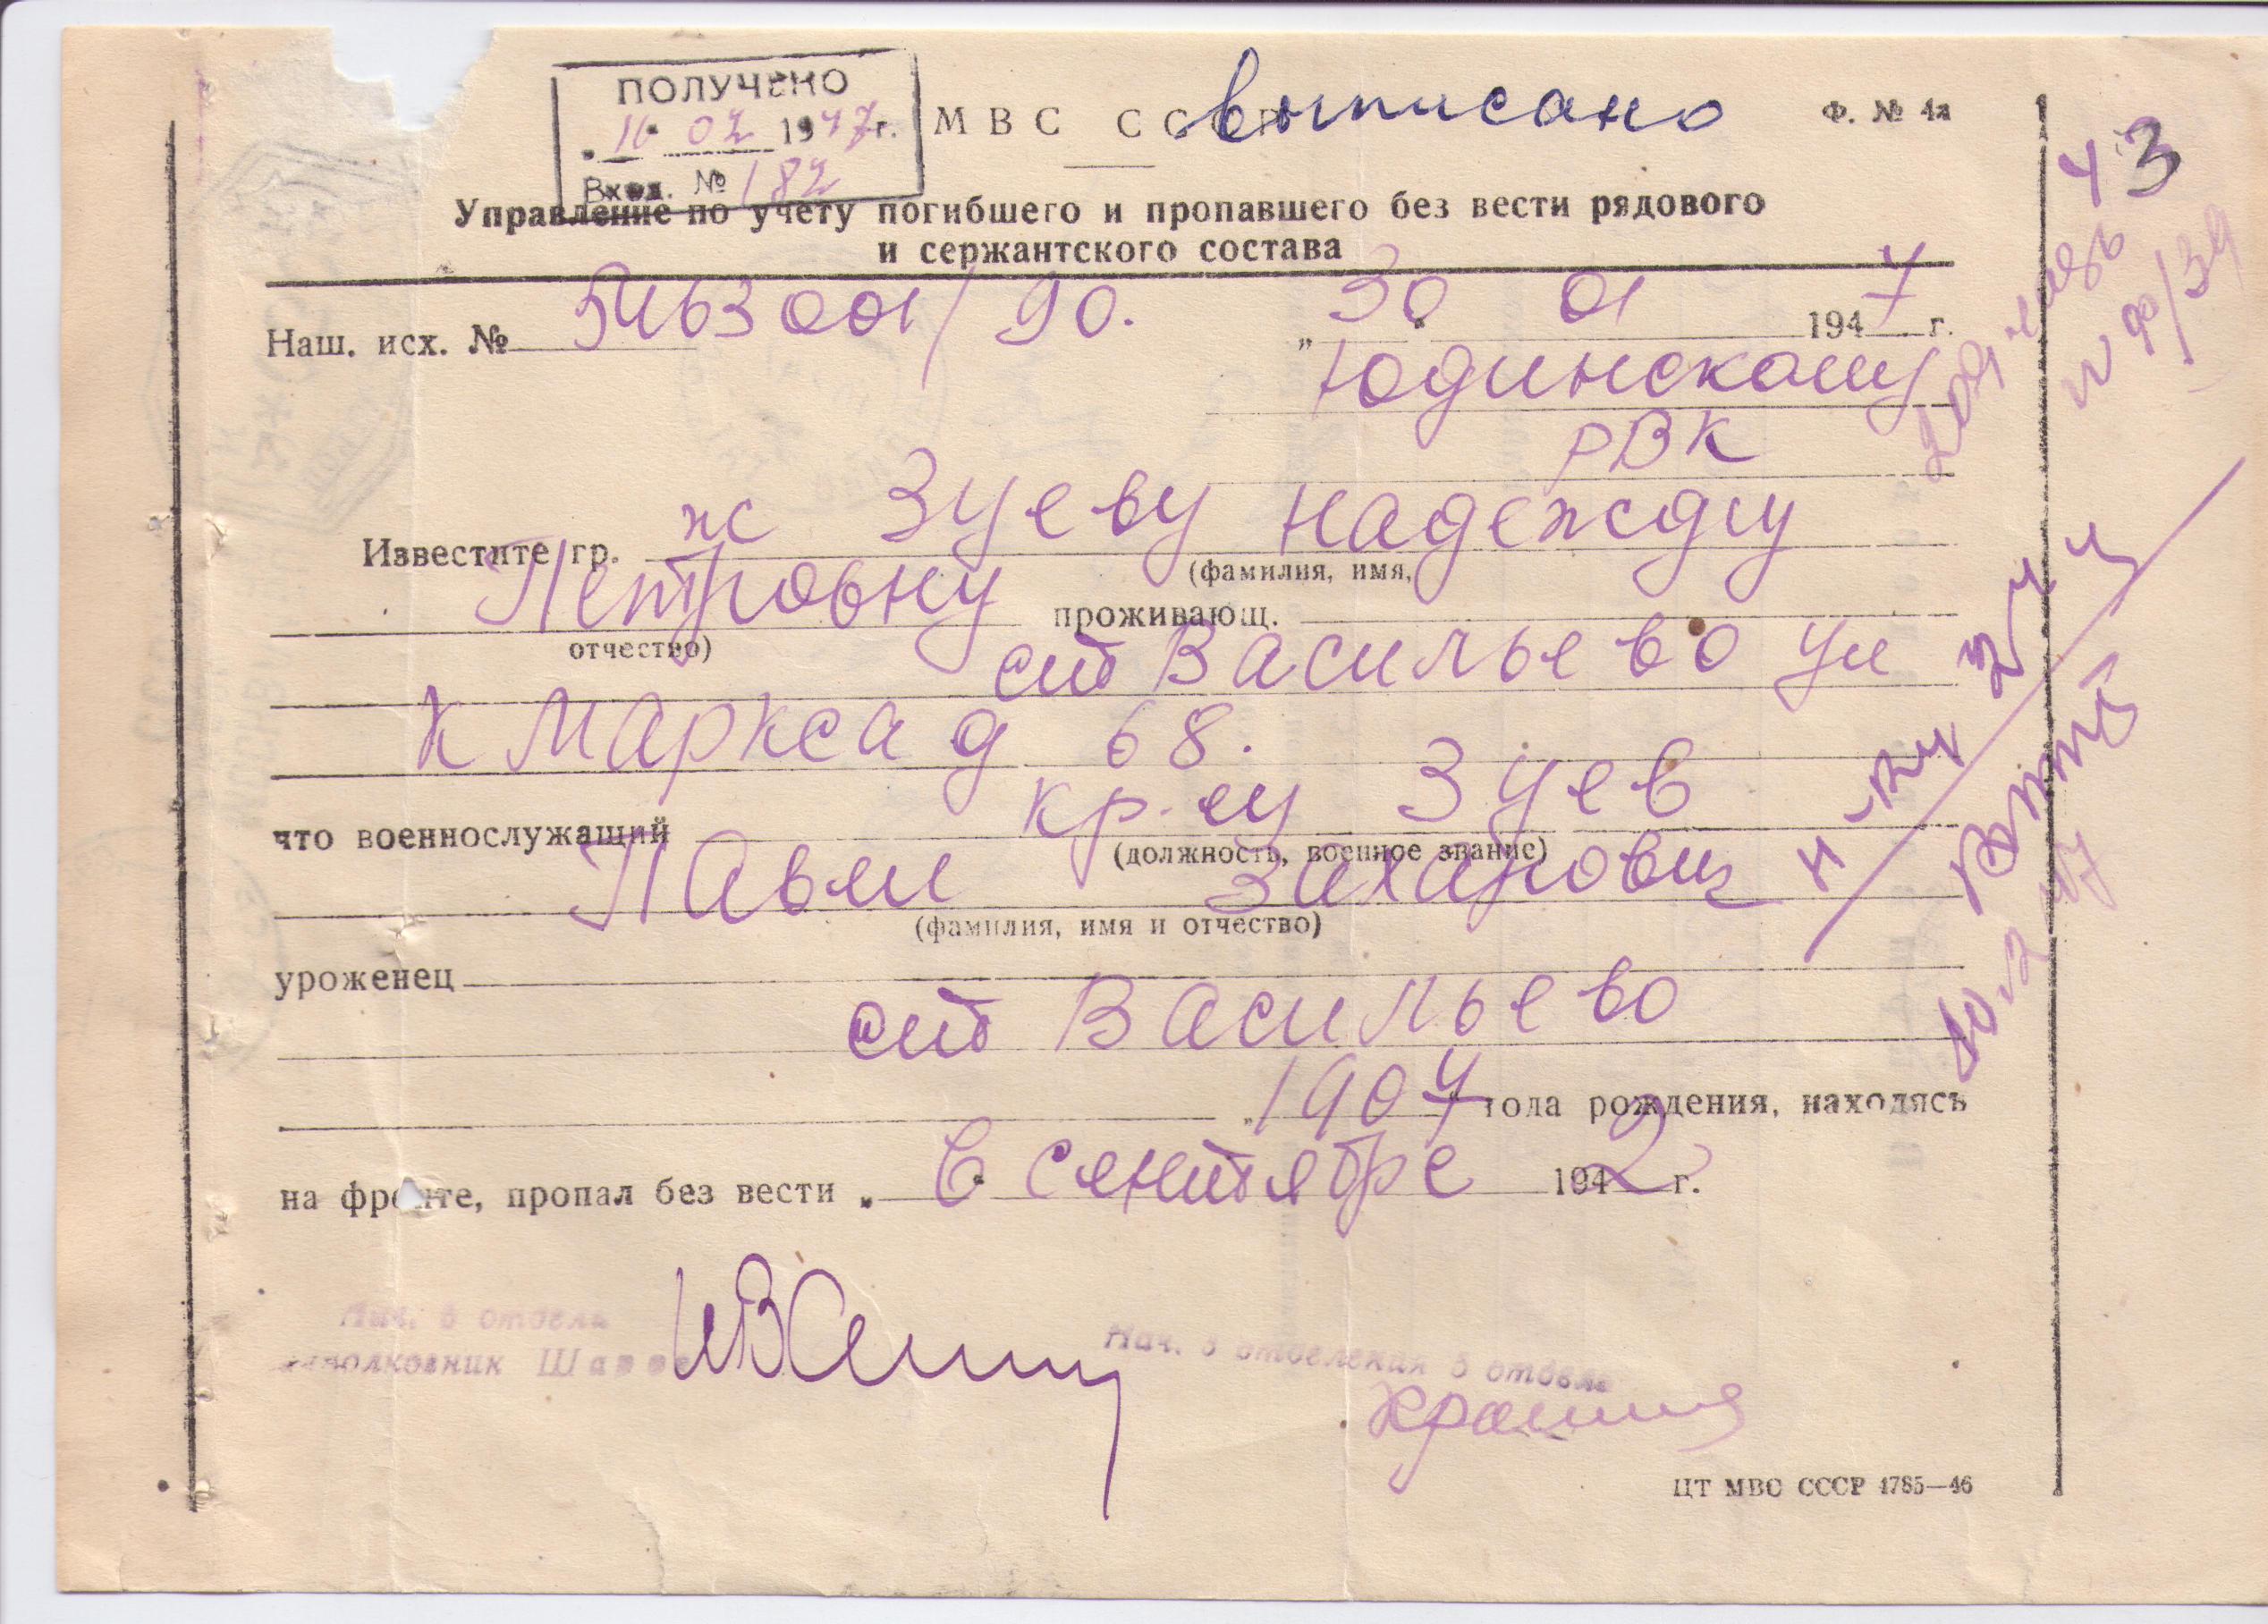 ПОЛУЧЕНО
02 1947г.
Вход. № 182
МВС СССР
выписано
Ф. № 4а
43
Управление по учету погибшего и пропавшего без вести рядового
и сержантского состава
Наш. исх. № 5463001/90. „30 01 1947 г.
Юдинскому
РВК
Известите гр. ж Зуеву Надежду
(фамилия, имя,
Петровну проживающ.
отчество)
ст Васильево ул
К Маркса д 68.
что военнослужащий кр-ец Зуев
(должность, военное звание)
Павел Захарович
(фамилия, имя и отчество)
уроженец
ст Васильево
1907 года рождения, находясь
на фронте, пропал без вести „ в сентябре 1942 г.
Нач. 6 отдела
Нач. отделения 6 отдела
ЦТ МВС СССР 1785—46